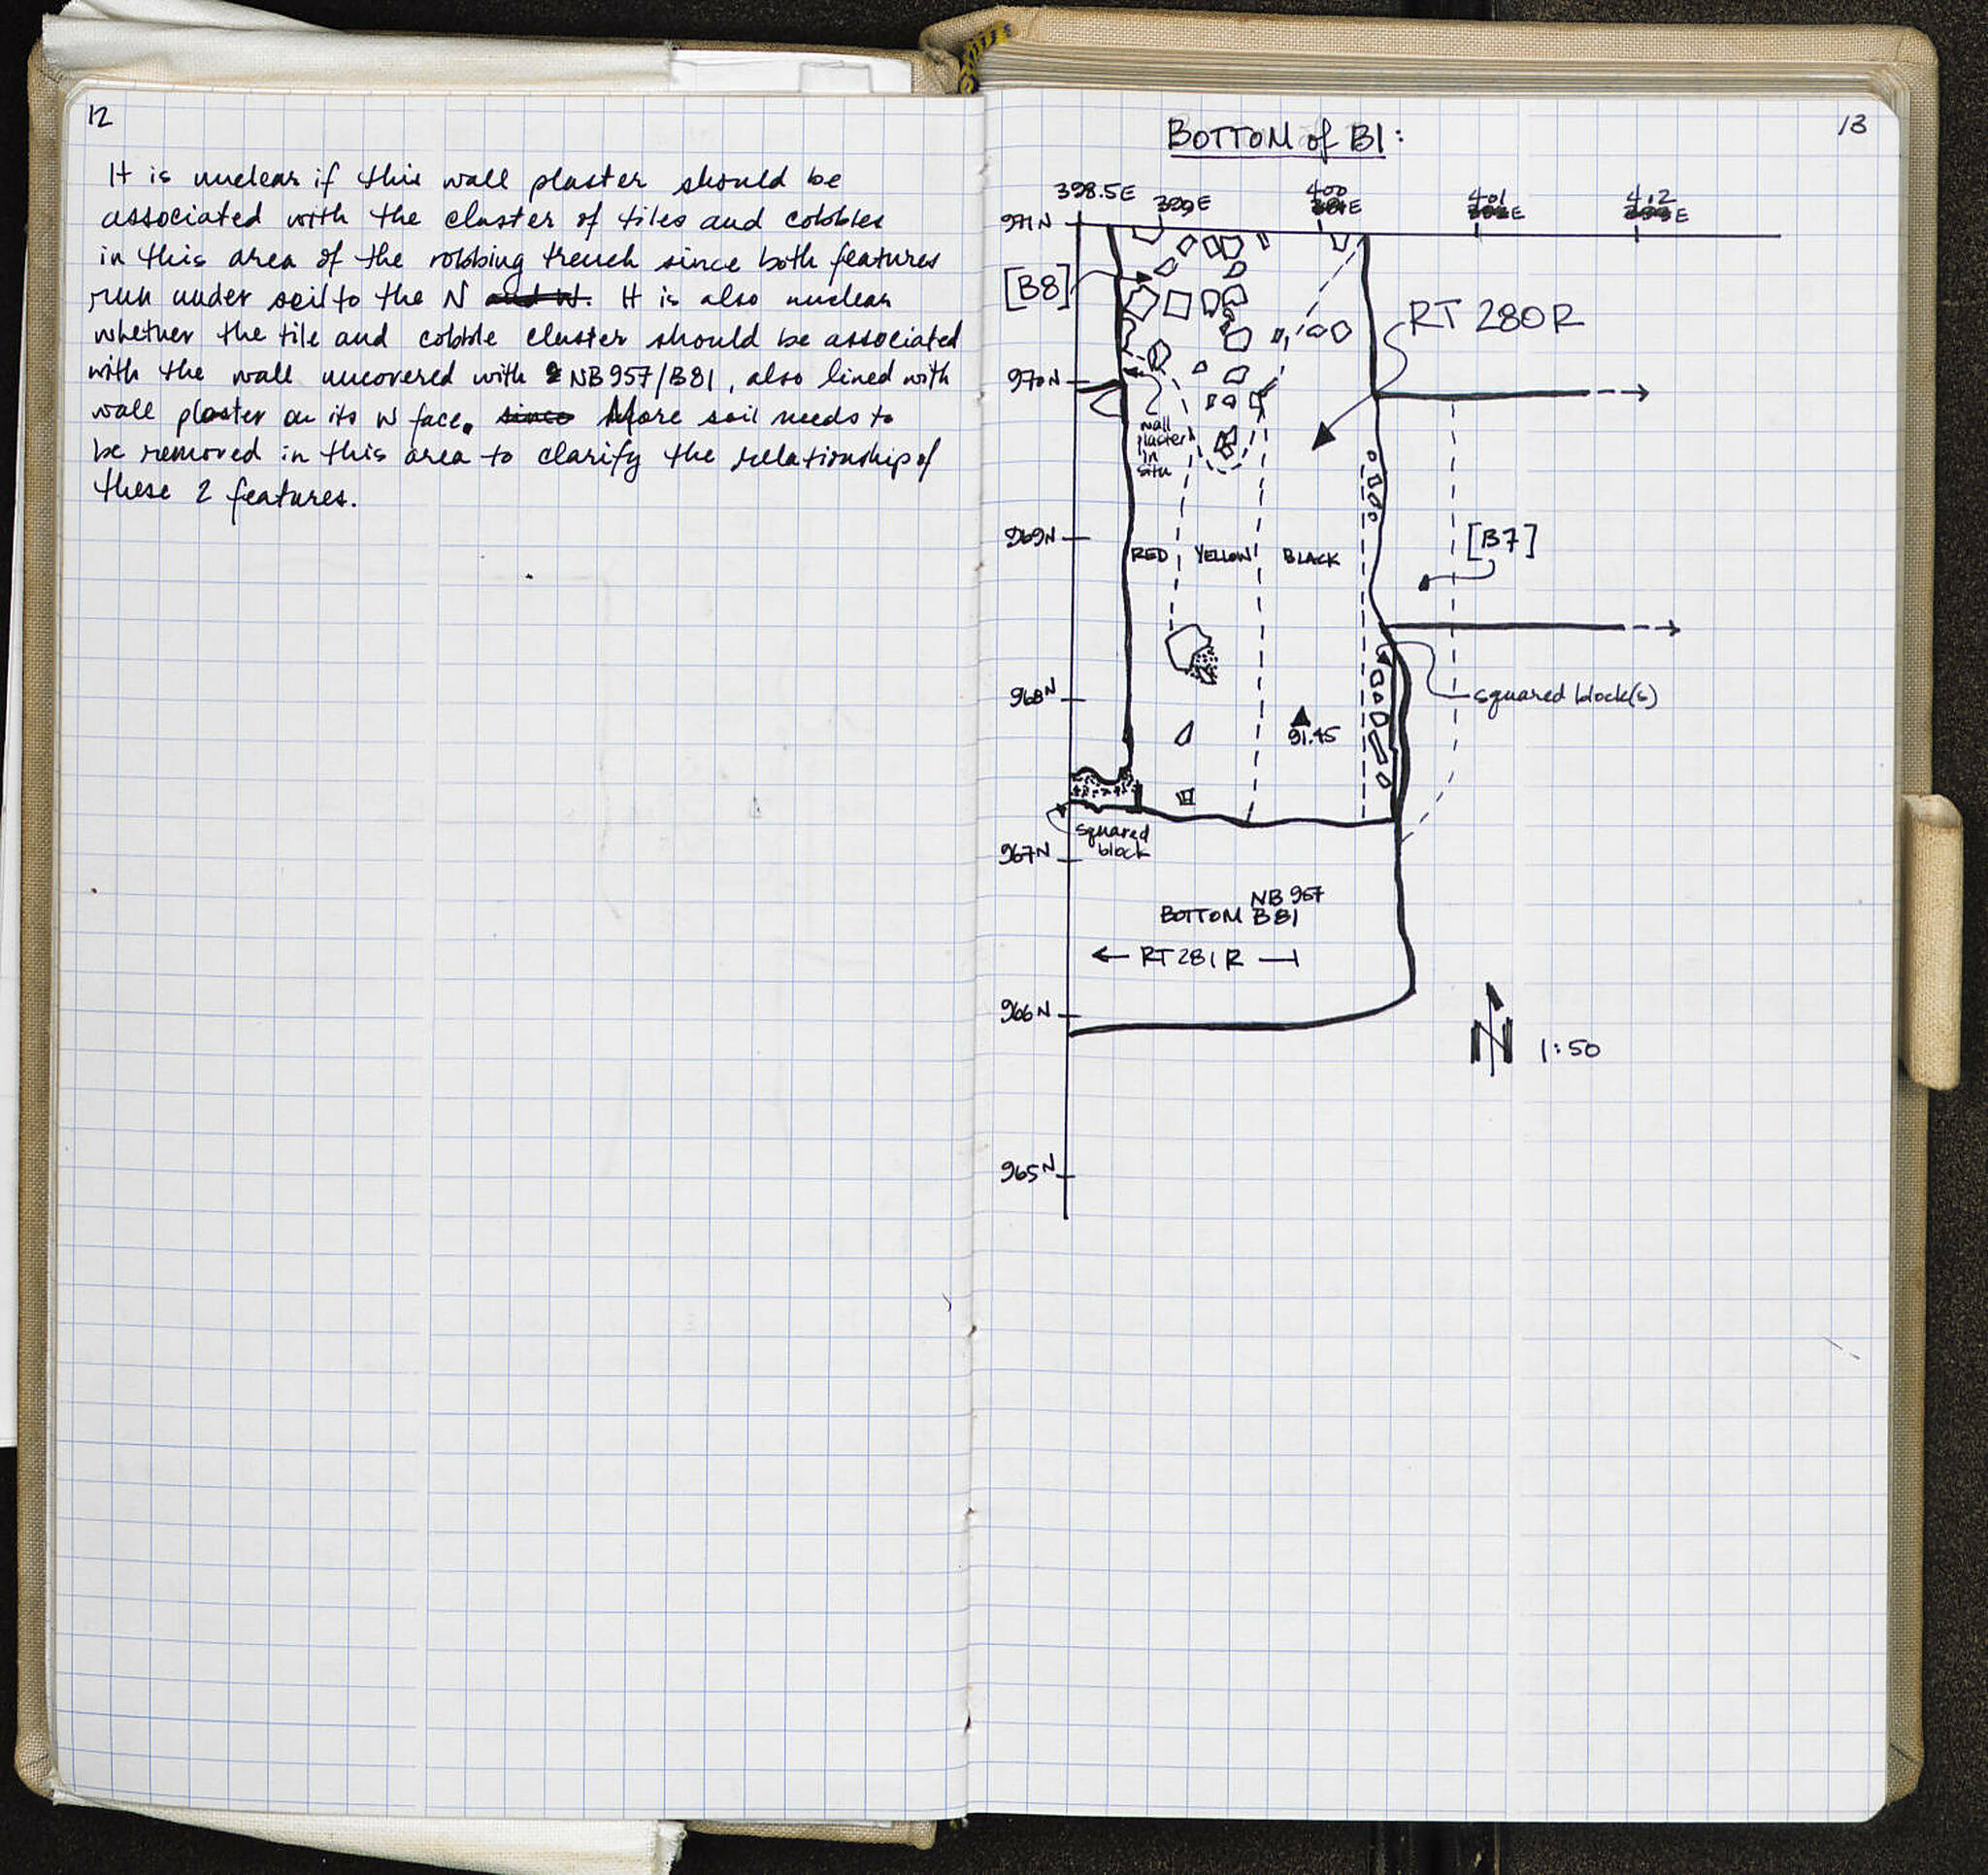 12
It is unclear if this wall plaster should be
associated with the cluster of tiles and cobbles
in this area of the robbing trench since both features
run under soil to the N and W. It is also unclear
whether the tile and cobble cluster should be associated
with the wall uncovered with NB 957/B81, also lined with
wall plaster on its W face. since More soil needs to
be removed in this area to clarify the relationship of
these 2 features.
13
BOTTOM of B1:
398.5E
399E
400
E
401
E
412
E
971N
[B8]
RT 280R
970N
wall
plaster
in
situ
969N
RED
YELLOW
BLACK
[B7]
968N
squared block(s)
91.45
squared
block
967N
NB 957
BOTTOM B81
← RT 281R —|
966N
N
1:50
965N